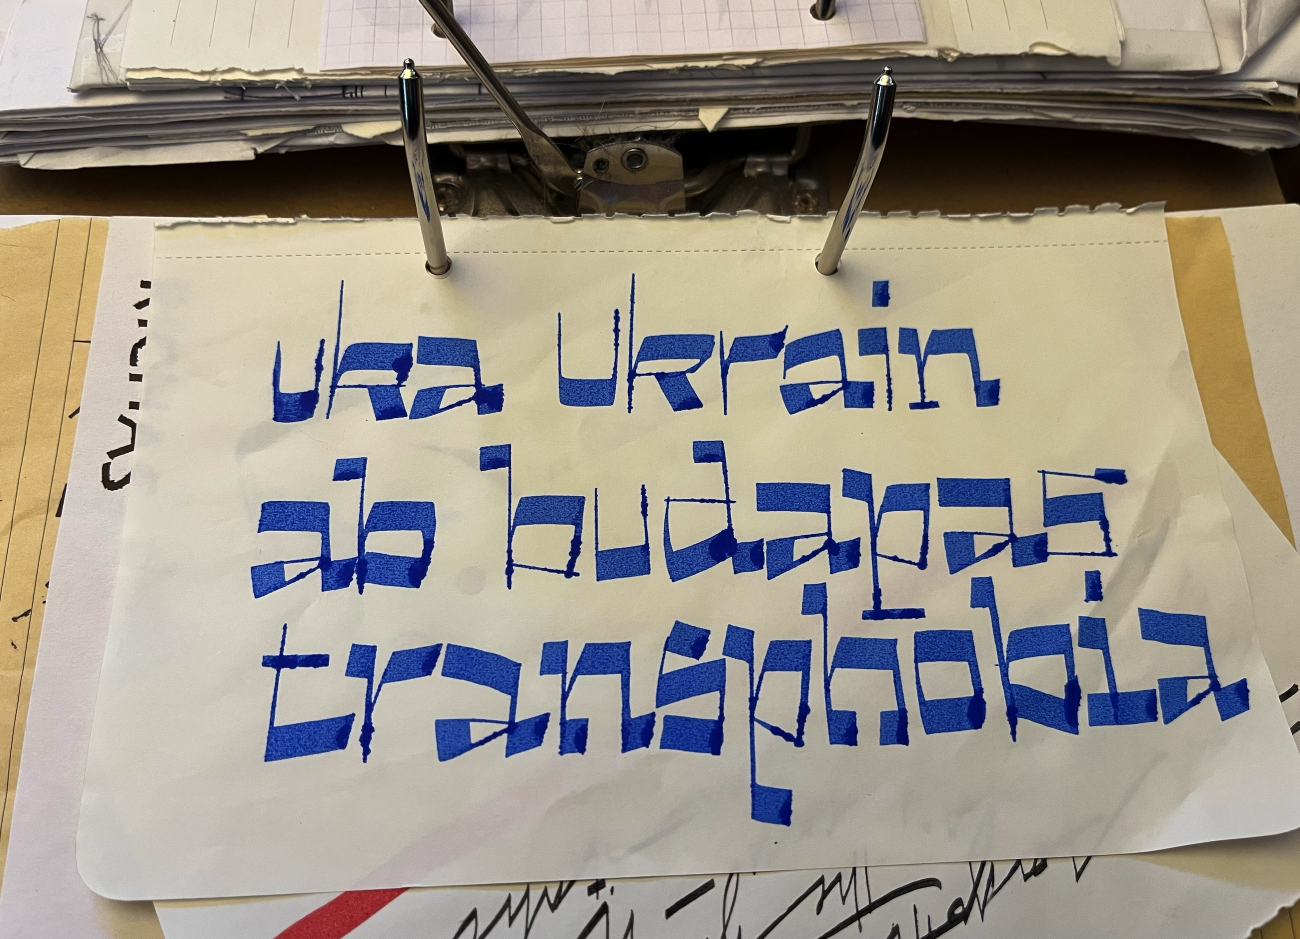 uka Ukrain
ab budapas
transphobia